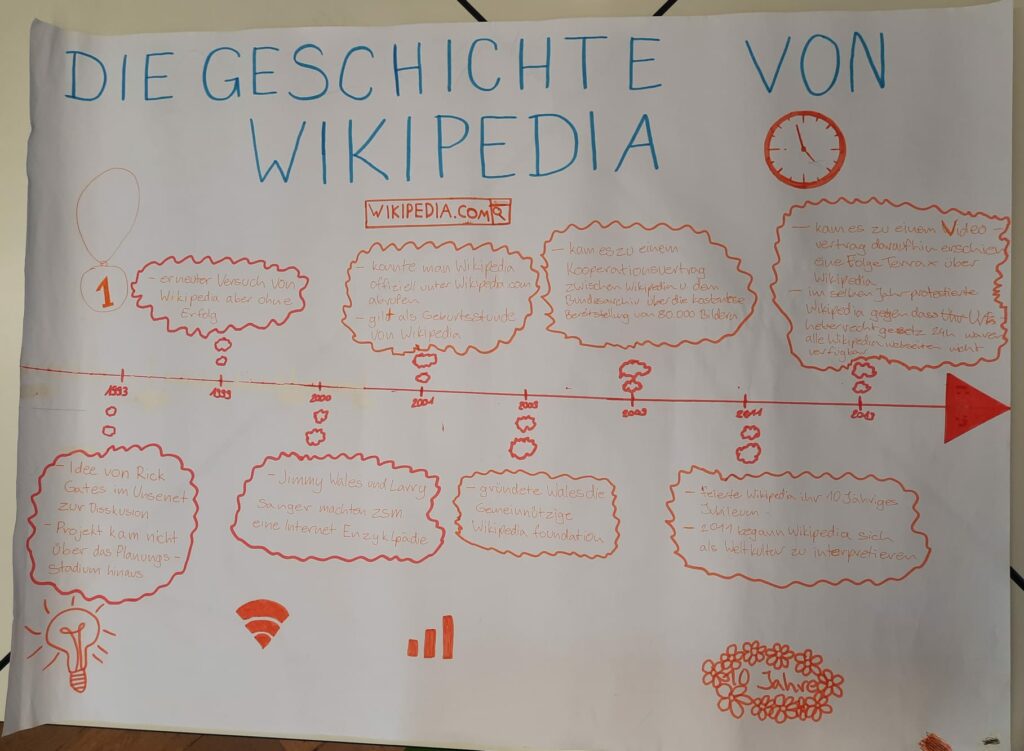 DIE GESCHICHTE VON
WIKIPEDIA
WIKIPEDIA.COM
1
- erneuter Versuch von
Wikipedia aber ohne
Erfolg
- konnte man Wikipedia
offiziell unter Wikipedia.com
abrufen
- gilt als Geburtsstunde
von Wikipedia
- kam es zu einem
Kooperationsvertrag
zwischen Wikipedia u dem
Bundesarchiv über die kostenlose
Bereitstellung von 80.000 Bildern
- kam es zu einem Video-
vertrag daraufhin erschien
eine Folge TerraX über
Wikipedia
- im selben Jahr protestierte
Wikipedia gegen das
24h waren
alle Wikipediawebseiten nicht
verfügbar
1993
1999
2000
2001
2003
2009
2011
- Idee von Rick
Gates im Unsenet
zur Disskusion
- Projekt kam nicht
über das Planungs-
stadium hinaus
- Jimmy Wales und Larry
Sanger machten zsm.
eine Internet Enzyklpädie
- gründete Wales die
Gemeinnützige
Wikipedia foundation
- feierte Wikipedia ihr 10 Jähriges
Jubileum.
- 2011 begann Wikipedia sich
als Weltkultur zu interpretieren
10 Jahre